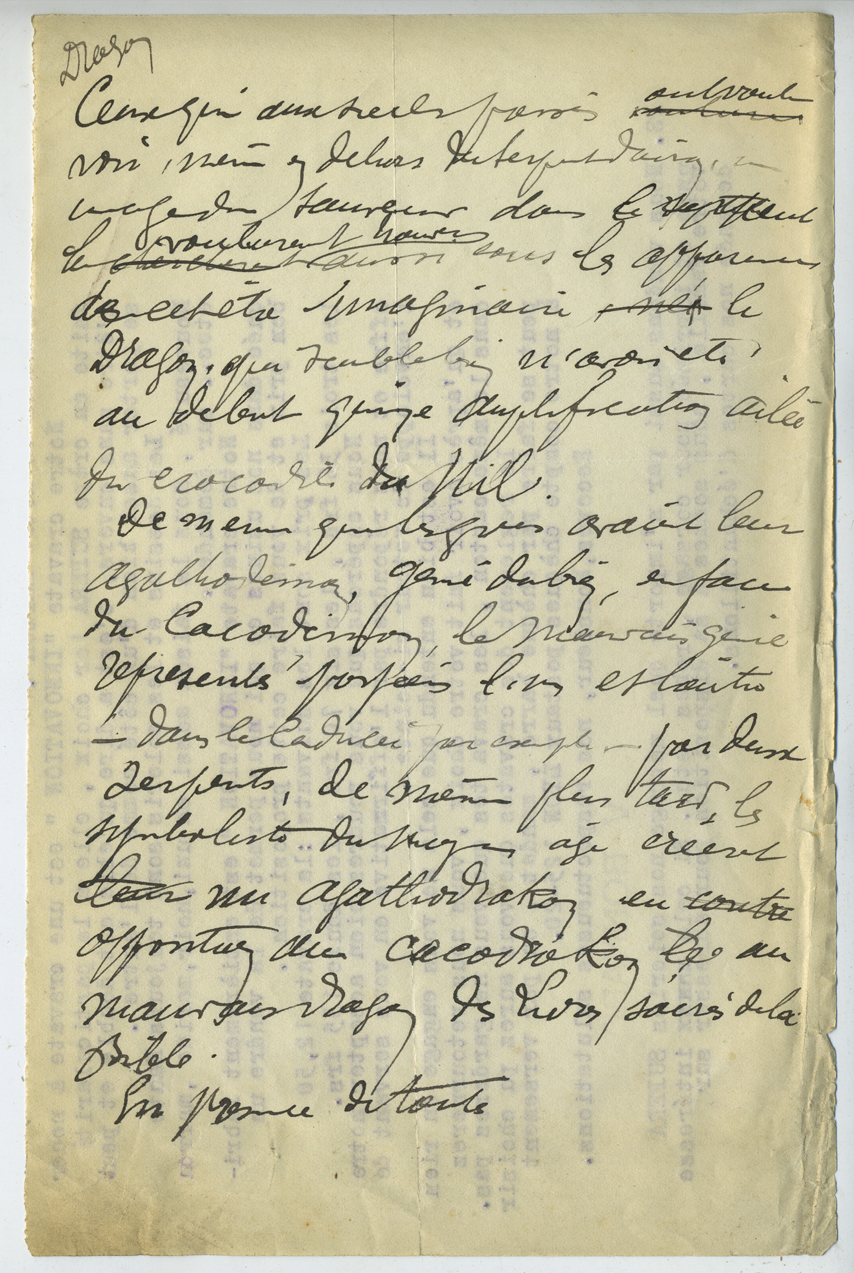 Dragon
Ceux qui aux siècles passés ont voulu
voir, même en dehors du serpent d'airain, une
image du Sauveur dans le serpent
le voulurent trouver aussi sous les apparences
de cet être imaginaire le
Dragon, qui semble bien n'avoir été
au début qu'une amplification ailée
du crocodile du Nil.
De même que les grecs avaient leur
agathodémon, génie du bien, en face
du Cacodémon, le mauvais génie
représentés parfois l'un et l'autre
— dans le Caducée par exemple — par deux
Serpents, de même plus tard, les
symbolistes du moyen âge créèrent
leur un agathodrakon en contre
opposition au cacodrakon au
mauvais dragon des Livres sacrés de la
Bible.
En présence de toute